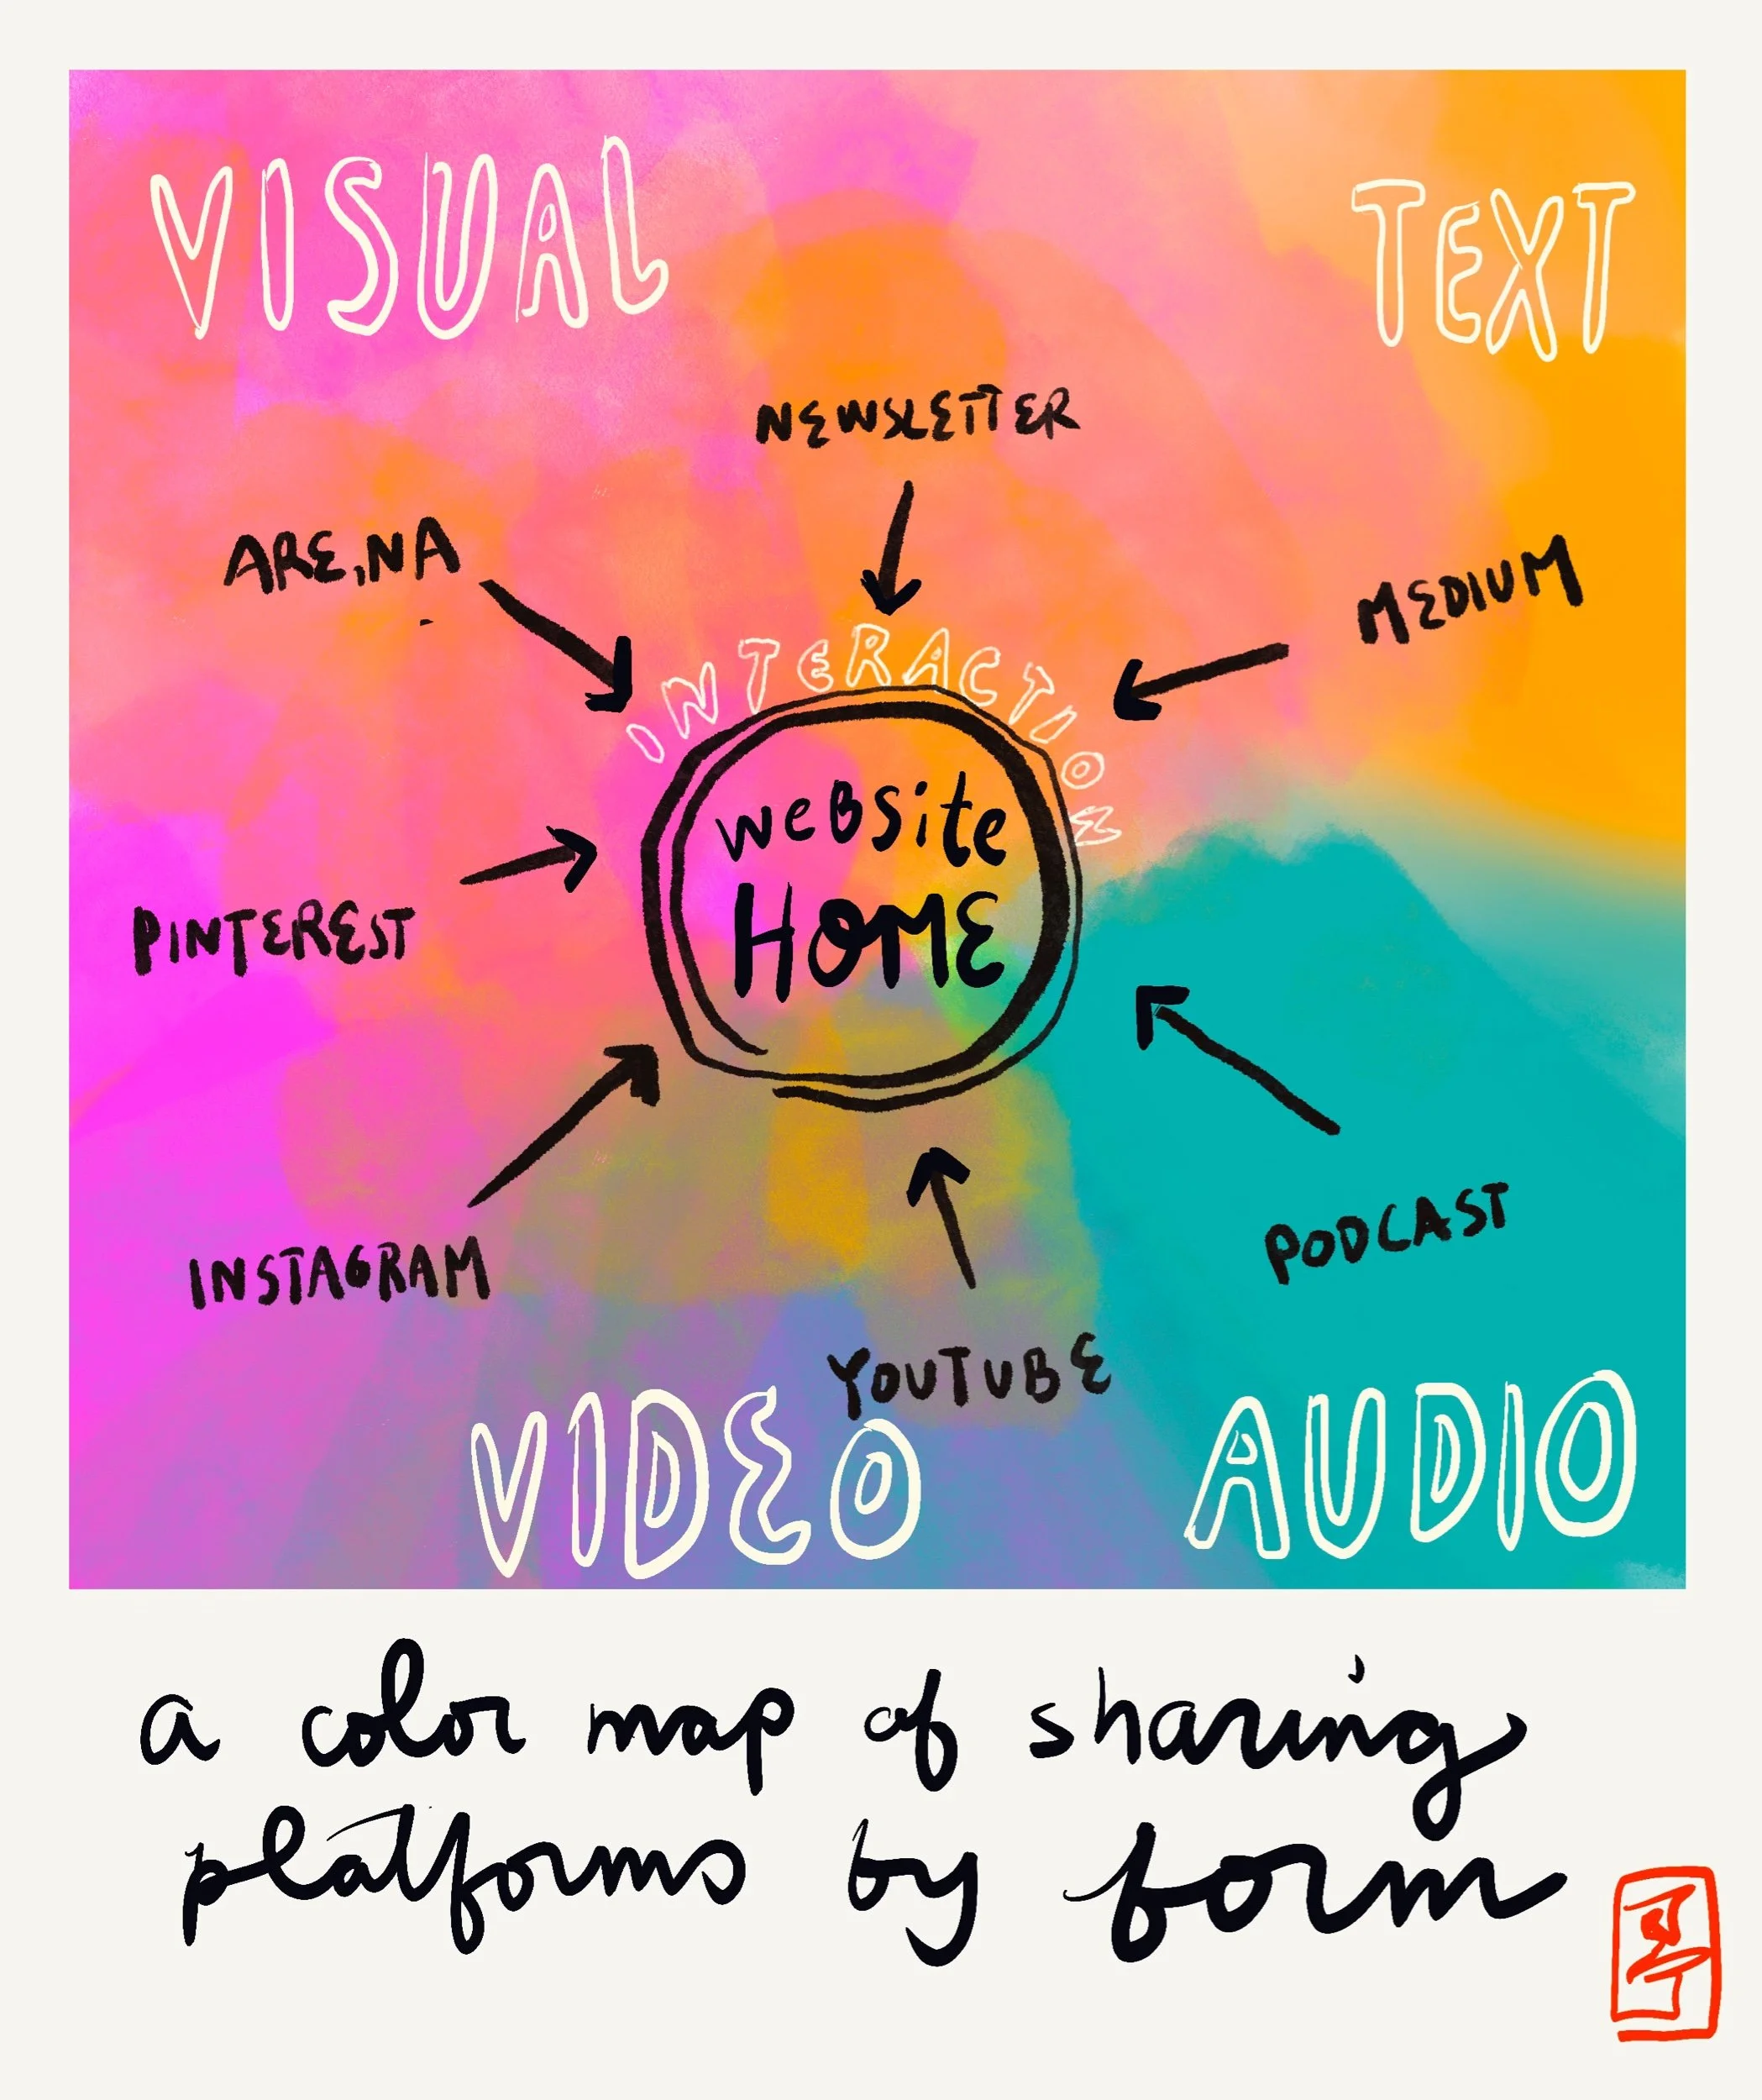 VISUAL
TEXT
NEWSLETTER
ARE.NA
MEDIUM
INTERACTION
website
HOME
PINTEREST
INSTAGRAM
PODCAST
YOUTUBE
VIDEO
AUDIO
a color map of sharing
platforms by form